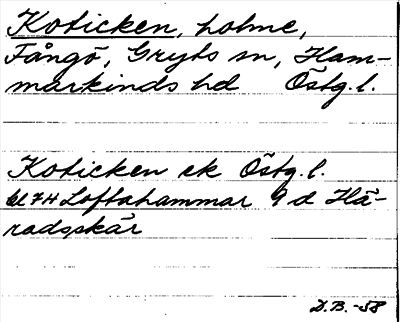 Koticken, holme,
Fångö, Gryts sn, Ham-
markinds hd Östg.l.
Koticken ek Östg.l.
bl 74 Loftahammar 9 d Hä-
radsskär
D.B. -58